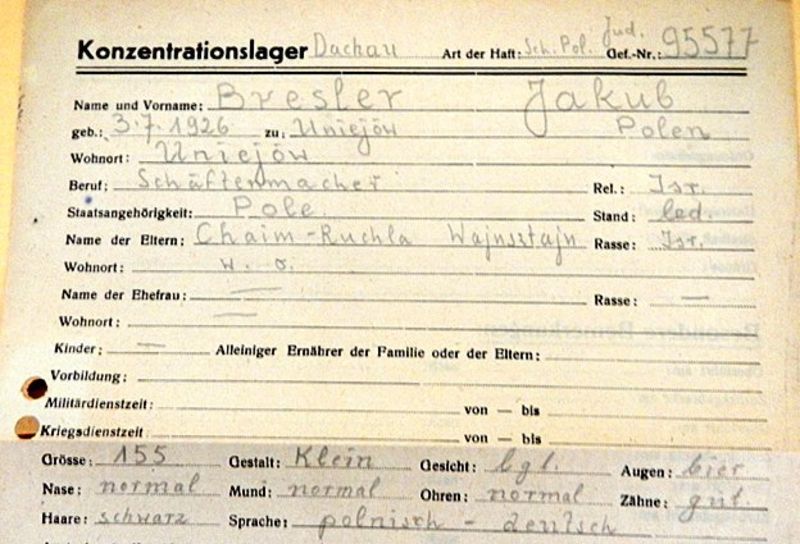 Konzentrationslager Dachau Art der Haft: Sch. Pol. Jud. Gef.-Nr.: 95577
Name und Vorname: Bresler Jakub
geb.: 3.7.1926 zu: Uniejów Polen
Wohnort: Uniejów
Beruf: Schäftenmacher Rel.: Isr.
Staatsangehörigkeit: Pole Stand: led.
Name der Eltern: Chaim-Ruchla Wajnsztajn Rasse: Isr.
Wohnort: w. o.
Name der Ehefrau: — Rasse: —
Wohnort: —
Kinder: — Alleiniger Ernährer der Familie oder der Eltern:
Vorbildung:
Militärdienstzeit: von — bis
Kriegsdienstzeit von — bis
Grösse: 155 Gestalt: Klein Gesicht: lgl. Augen: bier
Nase: normal Mund: normal Ohren: normal Zähne: gut.
Haare: schwarz Sprache: polnisch - deutsch